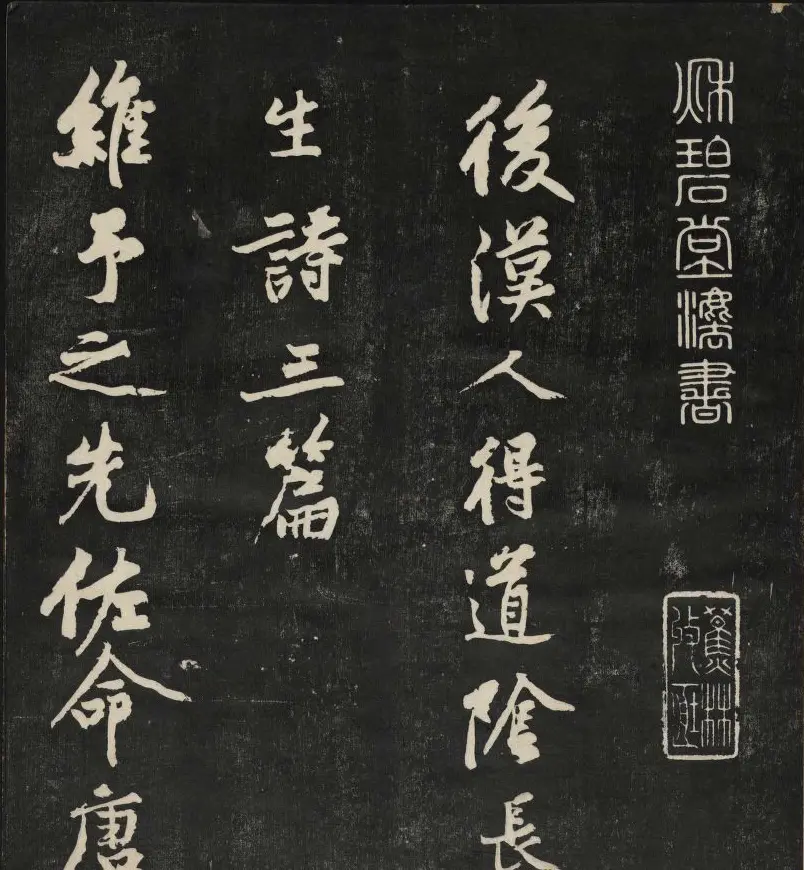 秋碧堂法書
後漢人得道陰長
生詩三篇
維予之先佐命唐